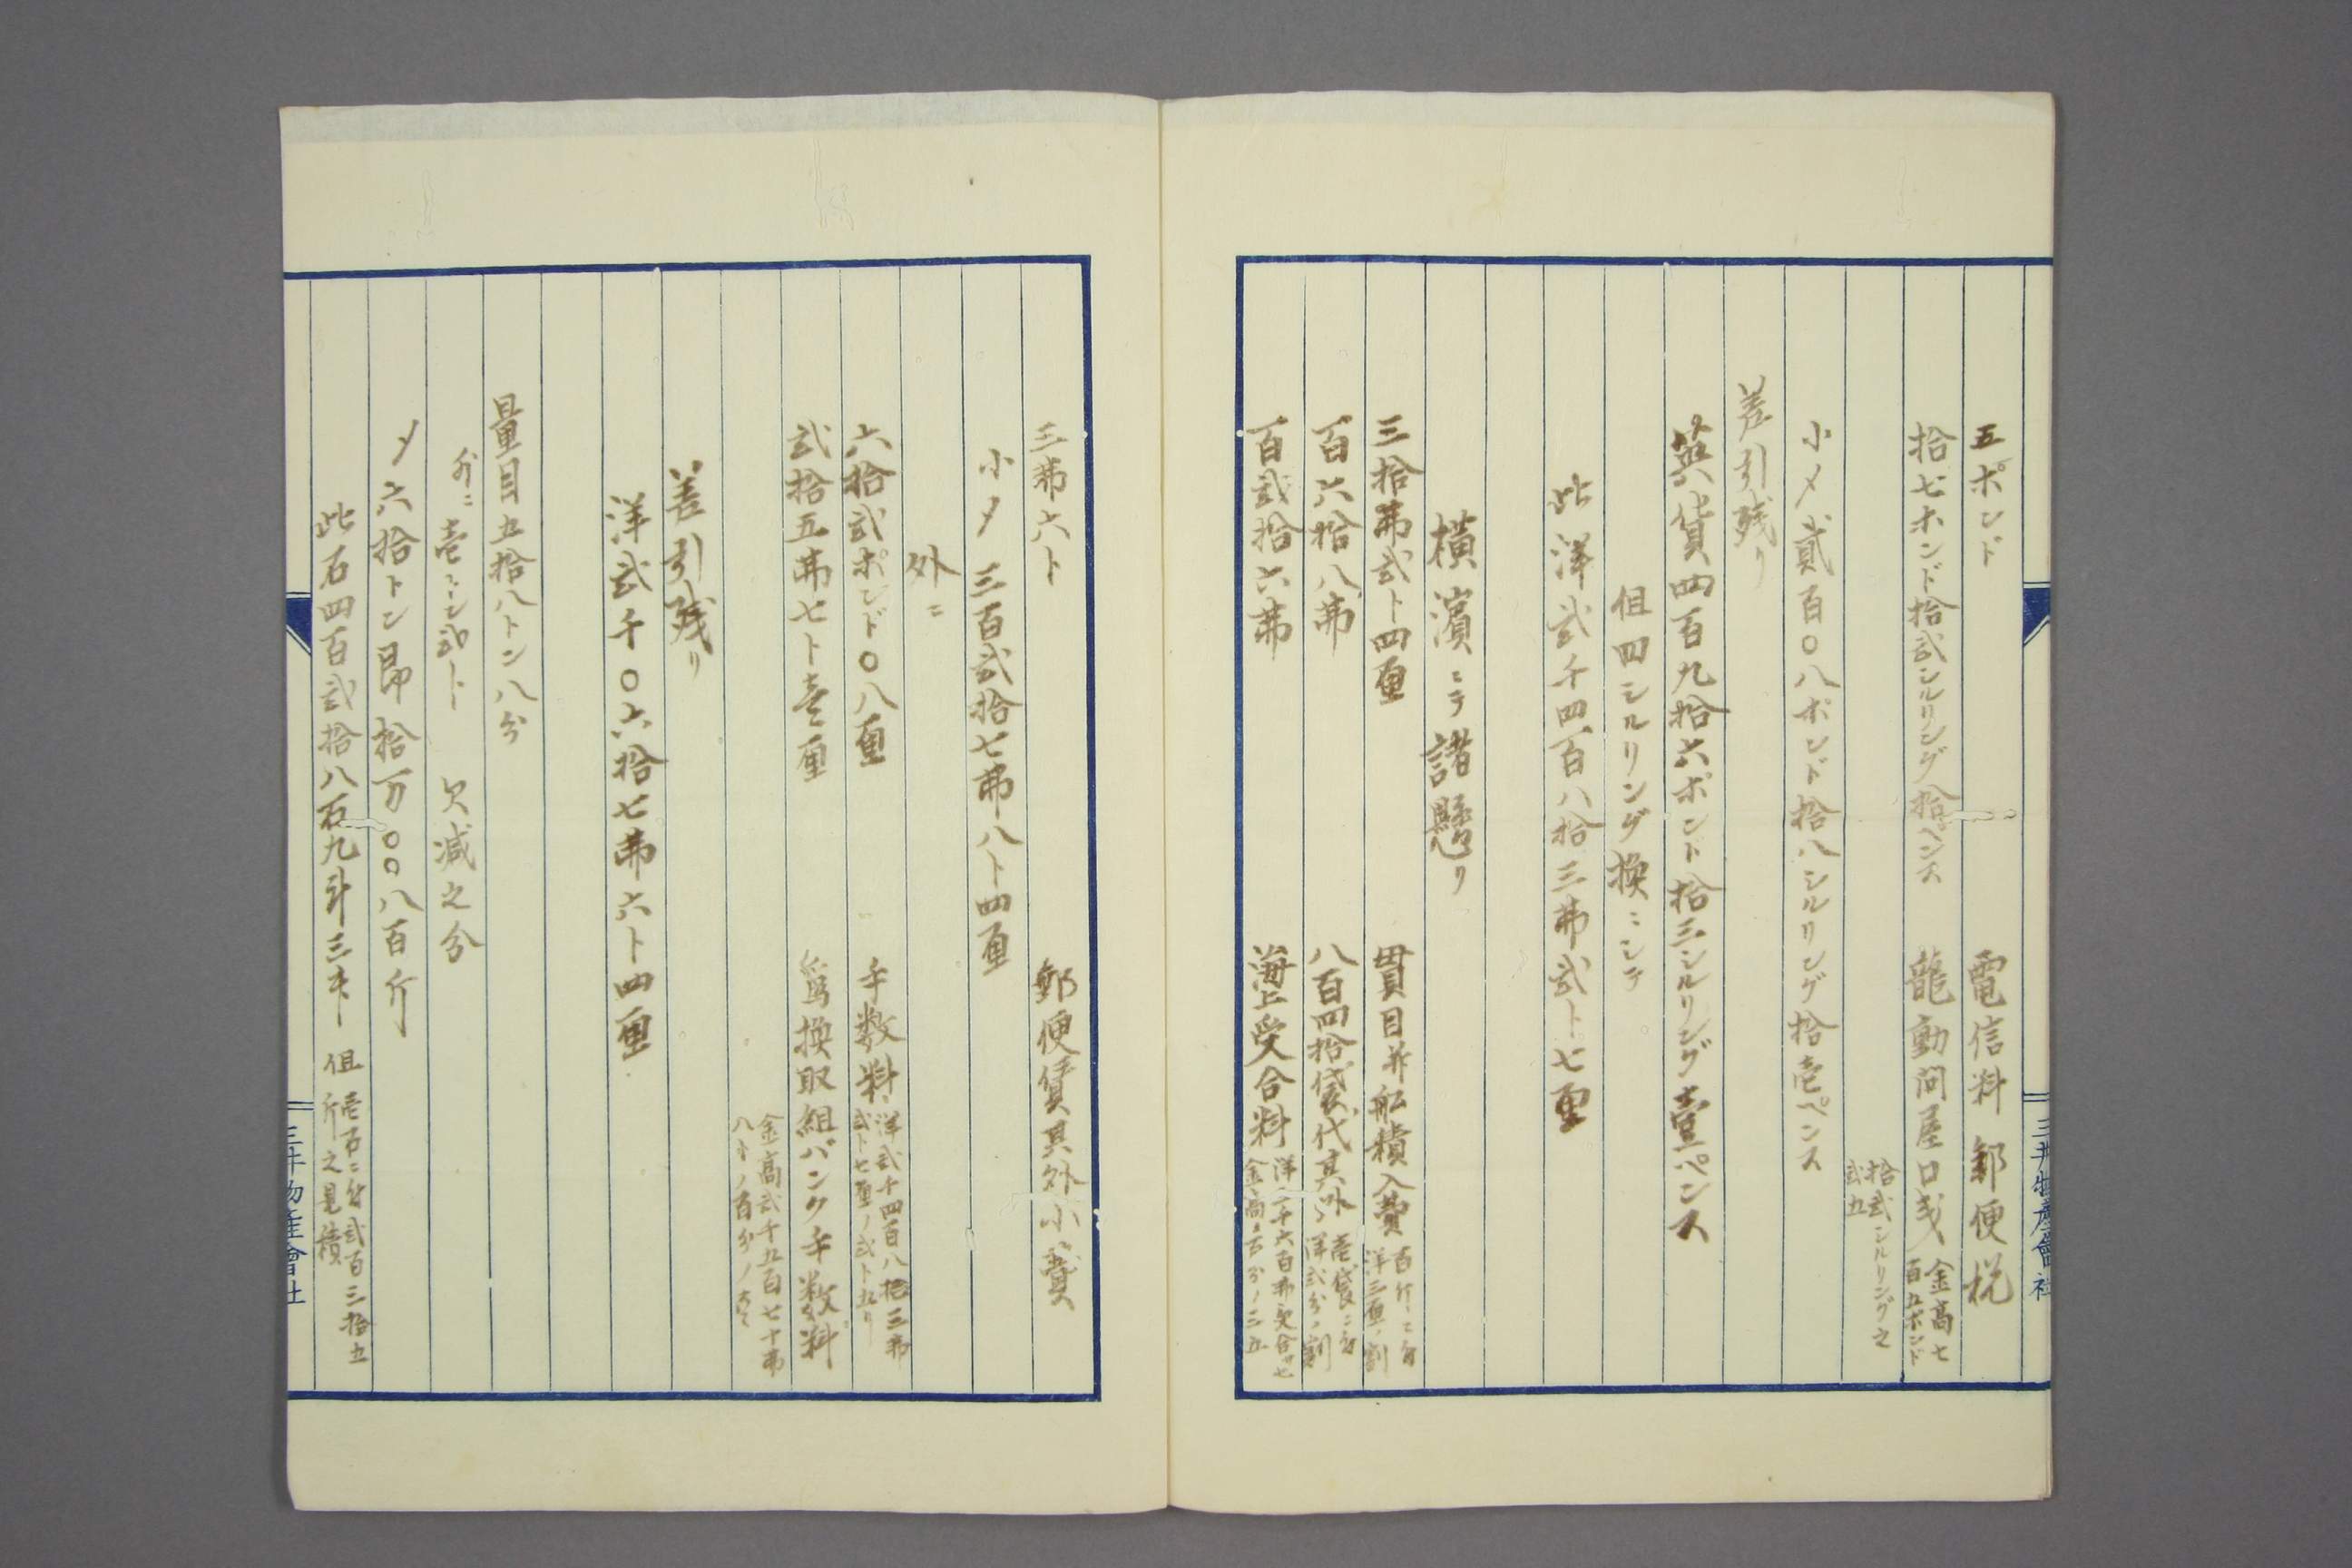 五ポンド 電信料郵便税
拾七ポンド拾弐シルリング拾ペンス 龍動問屋口戋 金高七百五ポンド
拾弐シルリング之弐五
小〆貳百〇八ポンド拾八シルリング拾壱ペンス
差引残リ
英貨四百九拾六ポント拾三シルリング壹ペンス
但四シルリング換ニシテ
此洋弐千四百八拾三弗弐ト七厘
横濱ニテ諸懸リ
三拾弗弐ト四厘 貫目并舩積入費 百斤ニ付洋三厘ノ割
百六拾八弗 八百四拾袋代其外 壱袋ニ付洋弐分ノ割
百弐拾六弗 海上受合料 洋三千六百弗受合
金高百分ノ三五
三弗六ト 郵便賃其外小費
小〆三百弐拾七弗八ト四厘
外ニ
六拾弐ポンド〇八厘 手数料 洋弐千四百八拾三弗弐ト七厘ノ弐ト五リ
弐拾五弗七ト壱厘 爲換取組バンク手数料
金高弐千五百七十弗八ト
差引残リ
洋弐千〇六拾七弗六ト四厘
量目五拾八トン八分
外ニ壱トン弐ト 欠減之分
〆六拾トン即拾万〇〇八百斤
此石四百弐拾八石九斗三升 但壱石ニ付弐百三拾五斤之見積
三井物産會社
三井物産會社